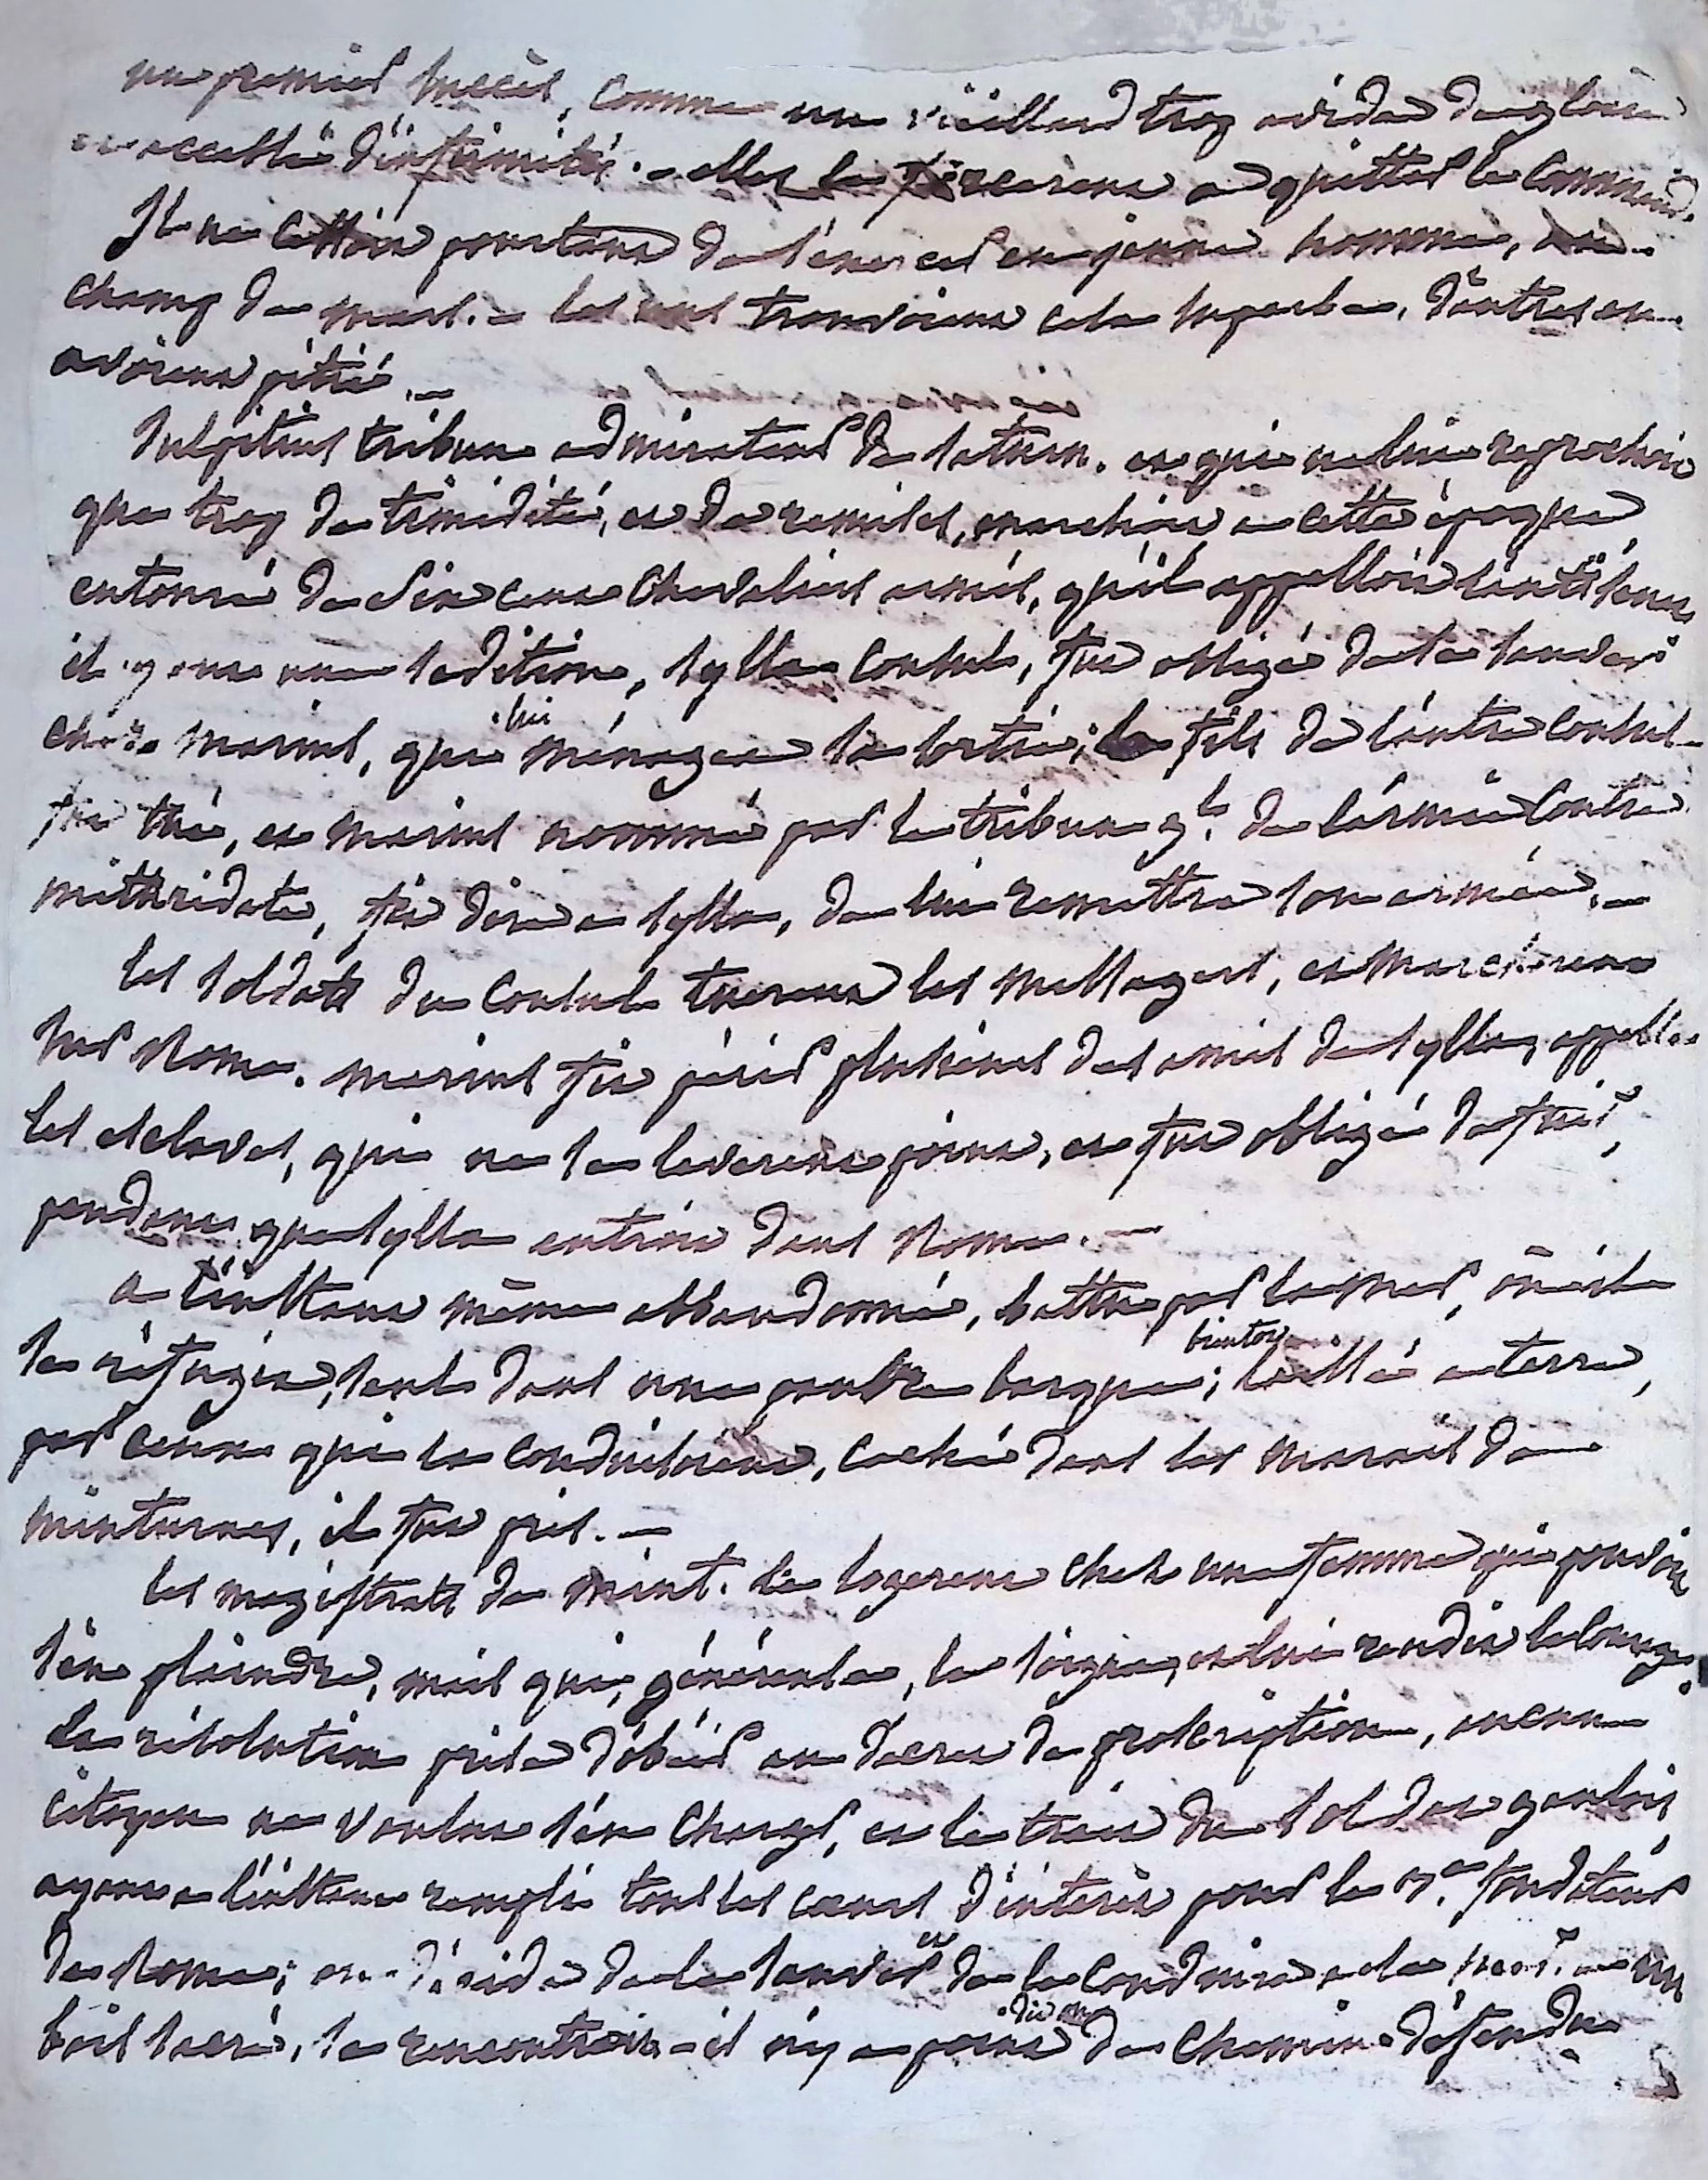 un premier succès, comme un vieillard trop avide de gloire
et accablé d'infirmités. – elles le forcerent a quitter le command.
Il ne cessoit pourtant de s'exercer en jeune homme, au
champ de mars. – les uns trouvoient cela superbe, d'autres en
avoient pitié. –
Sulpitius tribun admirateur de Saturn. et qui ne lui reprochoit
que trop de timidité, et de remises, marchoit a cette époque,
entouré de six cens chevaliers armés, qu'il appelloit l'anti sénat
il y eut une sedition, Sylla consul, fut obligé de se sauver
chez marius, qui lui ménagea sa sortie; le fils de l'autre consul
fut tué, et marius nommé par le tribun gl. de l'armée contre
mithridate, fit dire a Sylla, de lui remettre son armée. –
les soldats du consul tuerent les messagers, et marcherent
sur Rome. marius fit périr plusieurs des amis de Sylla, appella
les esclaves, qui ne se leverent point, et fut obligé de fuir,
pendant que Sylla entroit dans Rome. –
a l'instant même abbandonné, battu par la mer, où il
se réfugia, seul dans une pauvre barque; bientot laissé a terre,
par ceux qui le conduisoient, caché dans les marais de
minturnes, il fut pris. –
les magistrats de mint. le logerent chez une femme qui pouvoit
s'en plaindre, mais qui, généreuse, le soigna, et lui rendit le courage.
la résolution prise d'obéir au decret de proscription, aucun
citoyen ne voulut s'en charger, et le trait du soldat gaulois
ayant a l'instant rempli tous les cœurs d'interêt pour le 3.e fondateur
de Rome; on décida de le sauver et de le conduire a la mer. – un
bois sacré, se rencontroit – il n'y a point dit on de chemin défendu